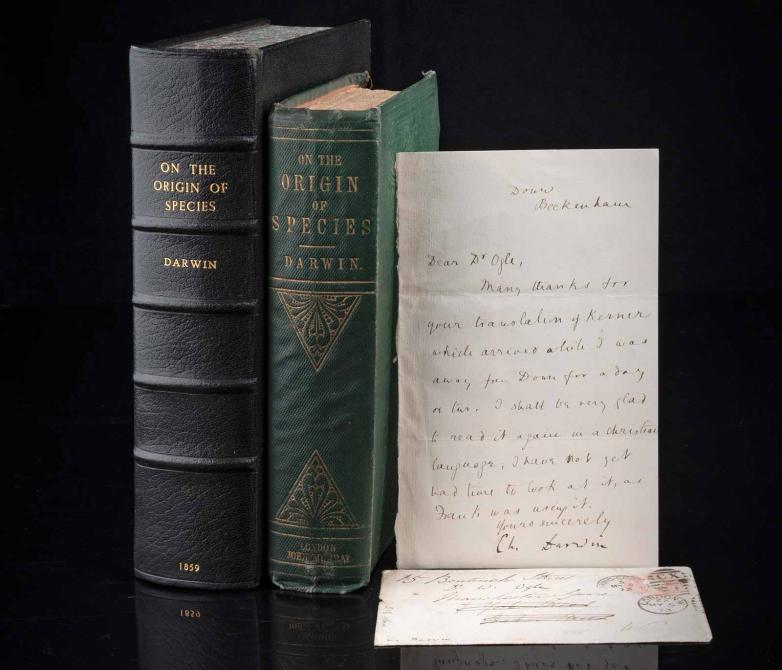 ON THE
ORIGIN OF
SPECIES
DARWIN
1859
ON THE
ORIGIN
OF
SPECIES
DARWIN.
LONDON
JOHN MURRAY
Down
Beckenham
Dear Dr Ogle,
Many thanks for
your translation of Kerner
which arrived while I was
away from Down for a day
or two. I shall be very glad
to read it again in a christian
language, I have not yet
had time to look at it, as
Frank was using it.
Yours sincerely
Ch. Darwin
15
Dr W. Ogle